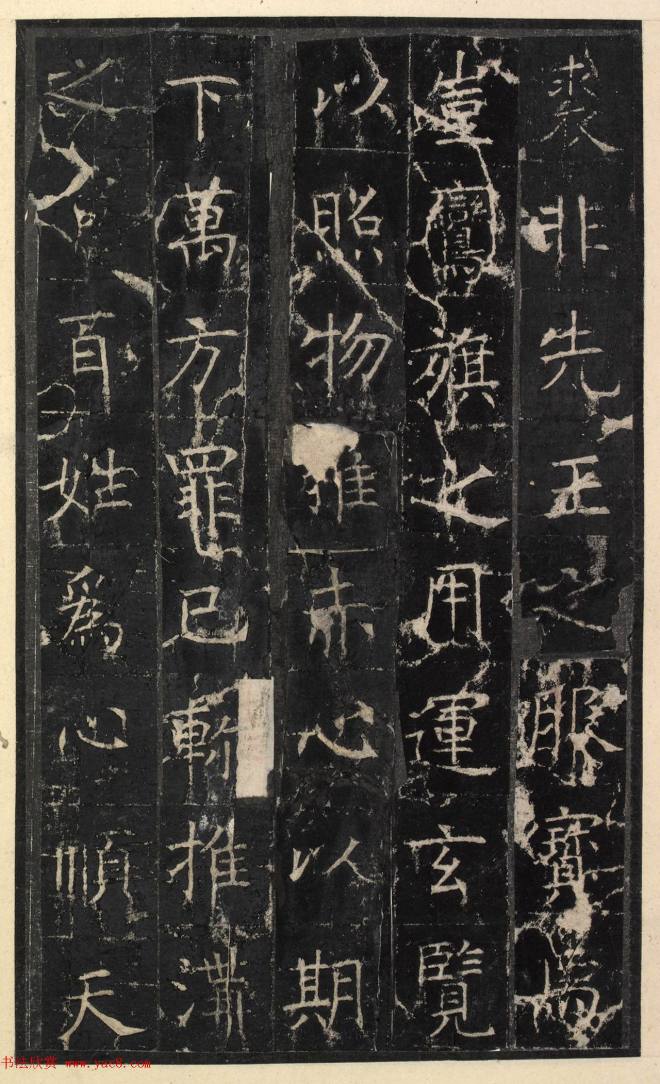 裘非先王之服寶馬
豈鸞旗之用運玄覽
以照物推赤心以期
下萬方罪己軫推溝
之百姓爲心順天
书法欣赏 www.yac8.com